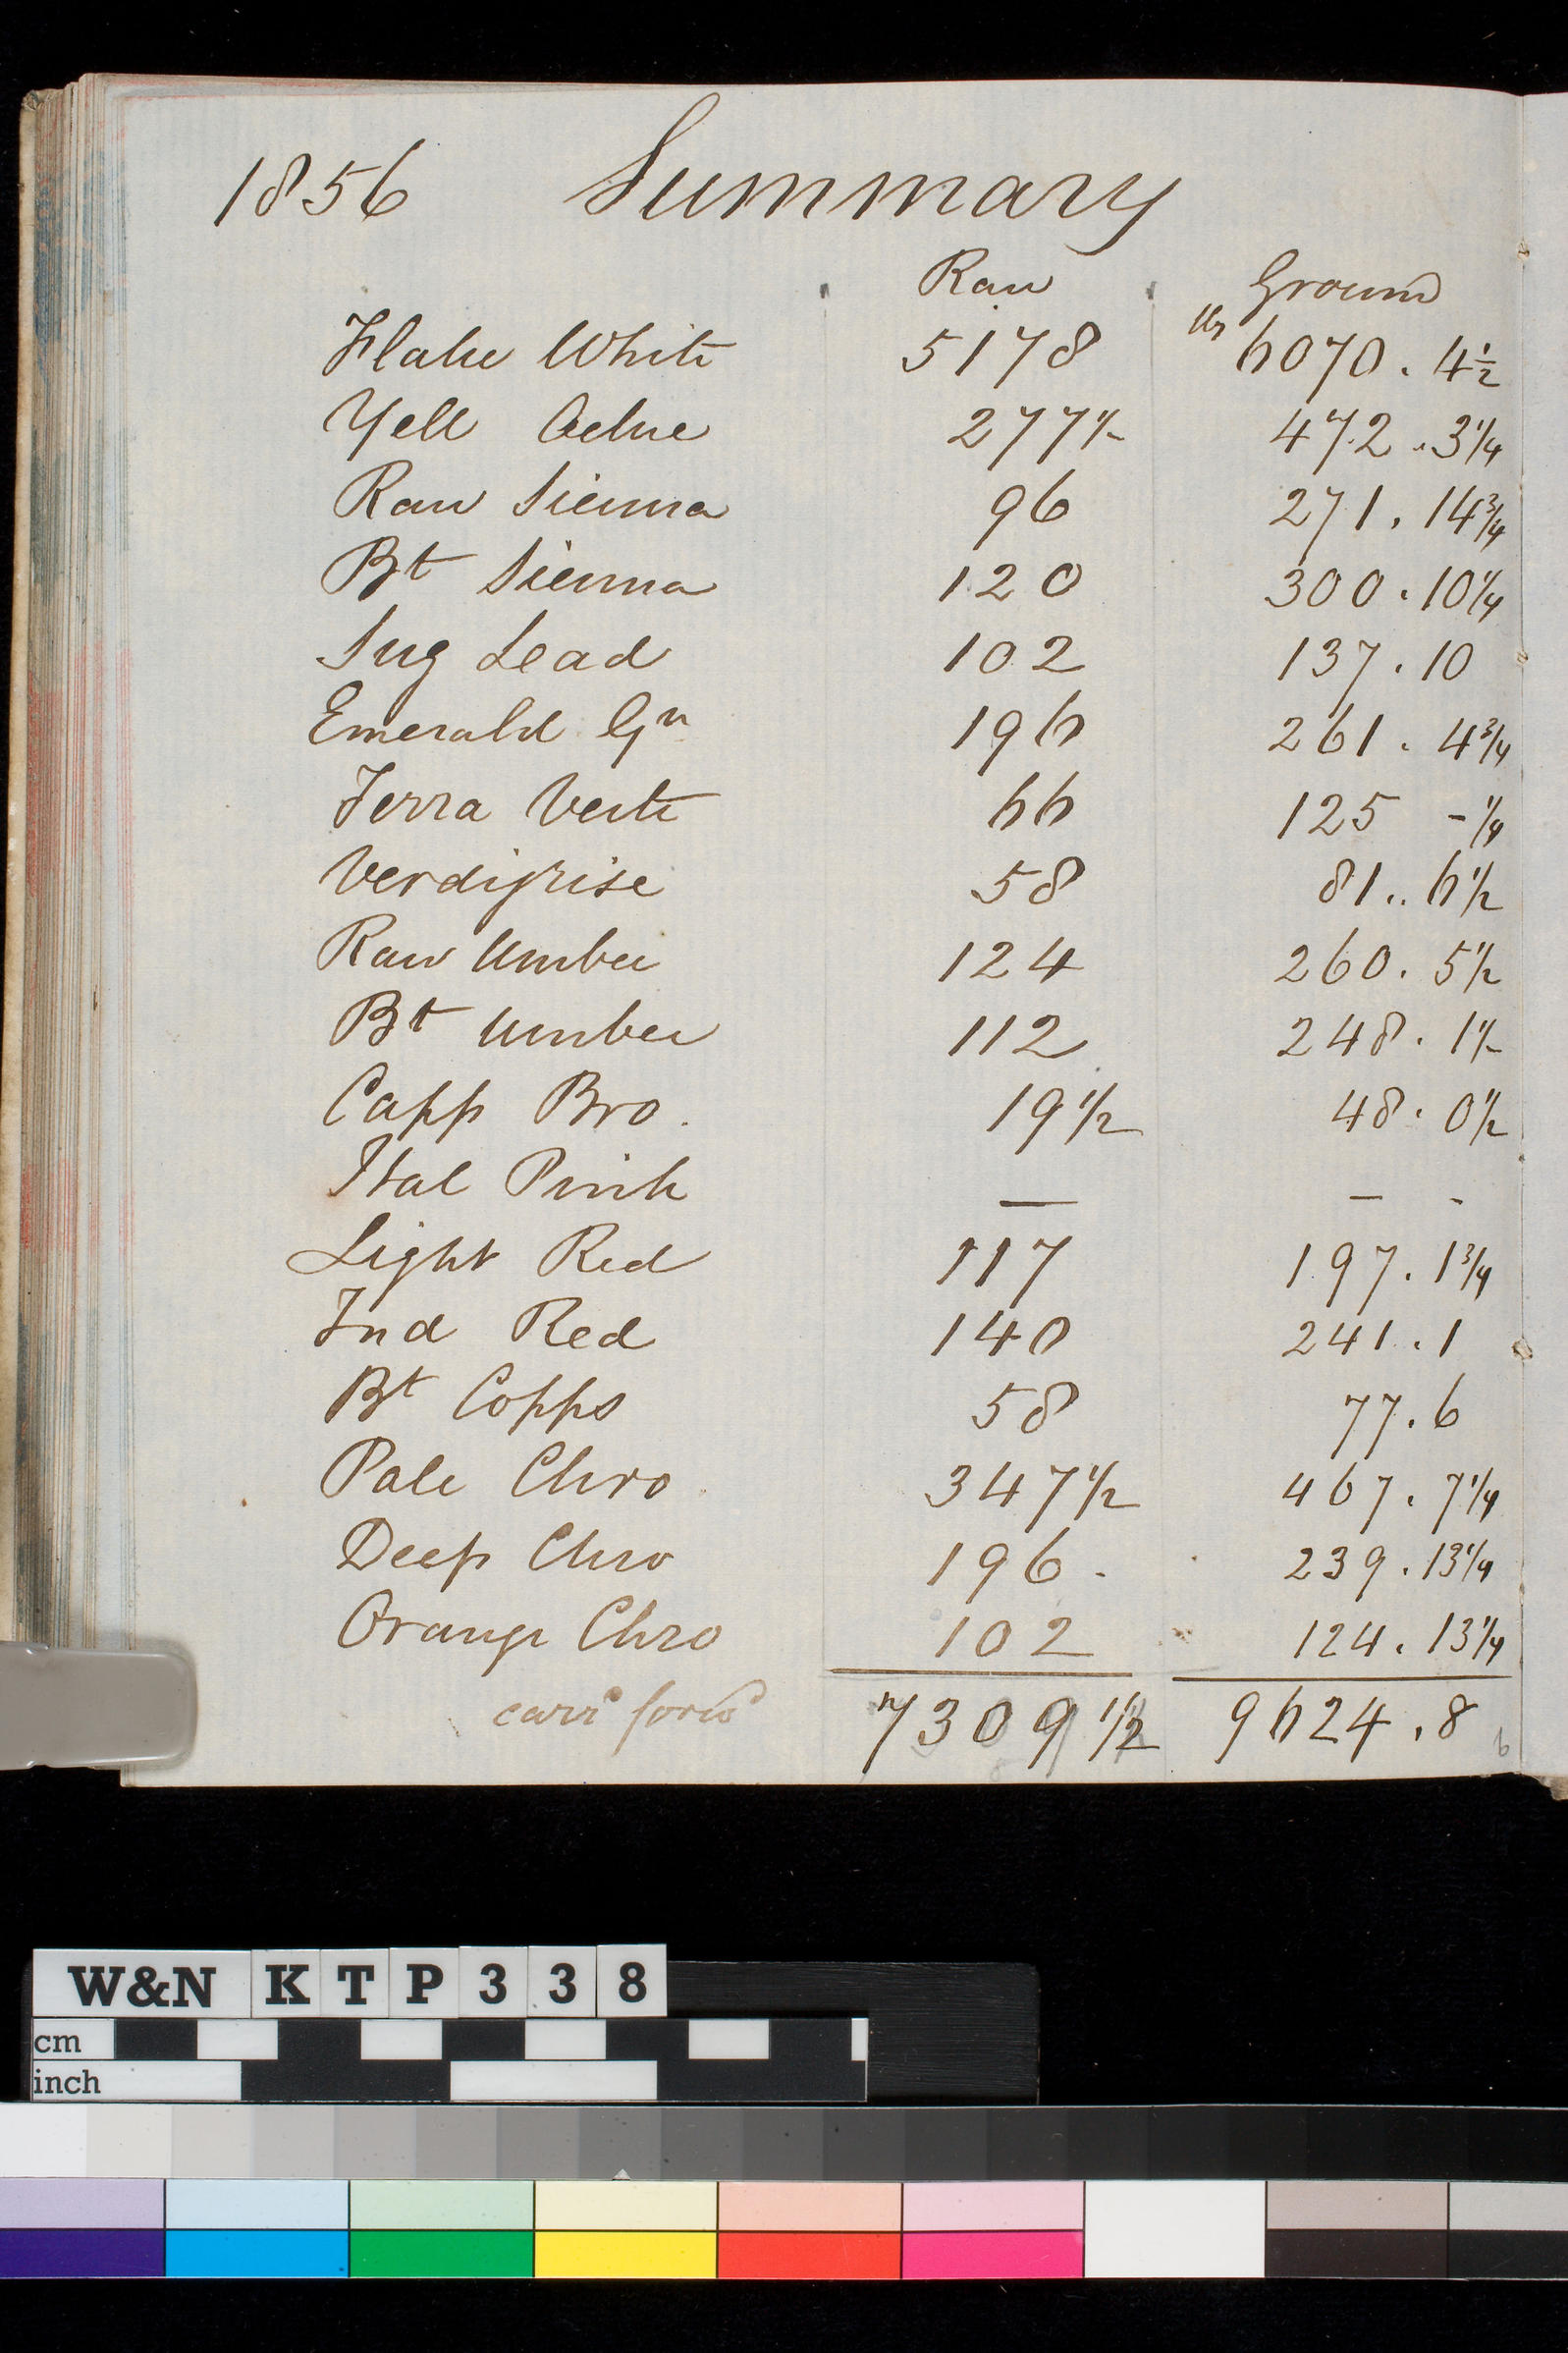 1856 Summary
Raw Ground
Flake White 5178 lbs 6070 . 4 1/2
Yell Ochre 277 1/2 472 . 3 1/4
Raw Sienna 96 271 . 14 3/4
Bt Sienna 120 300 . 10 1/4
Sug Lead 102 137 . 10
Emerald Gn 196 261 . 4 3/4
Terra Verte 66 125 - 1/4
Verdigrise 58 81 .. 6 1/2
Raw Umber 124 260 . 5 1/2
Bt Umber 112 248 . 1 1/2
Capp Bro. 19 1/2 48 . 0 1/2
Ital Pink — — -
Light Red 117 197 . 1 3/4
Ind Red 140 241 . 1
Bt Copps 58 77 . 6
Pale Chro 347 1/2 467 . 7 1/4
Deep Chro 196 . 239 . 13 1/4
Orange Chro 102 124 . 13 1/4
carrd forwd 7309 1/2 9624 . 8
6
W&N KTP338
cm
inch